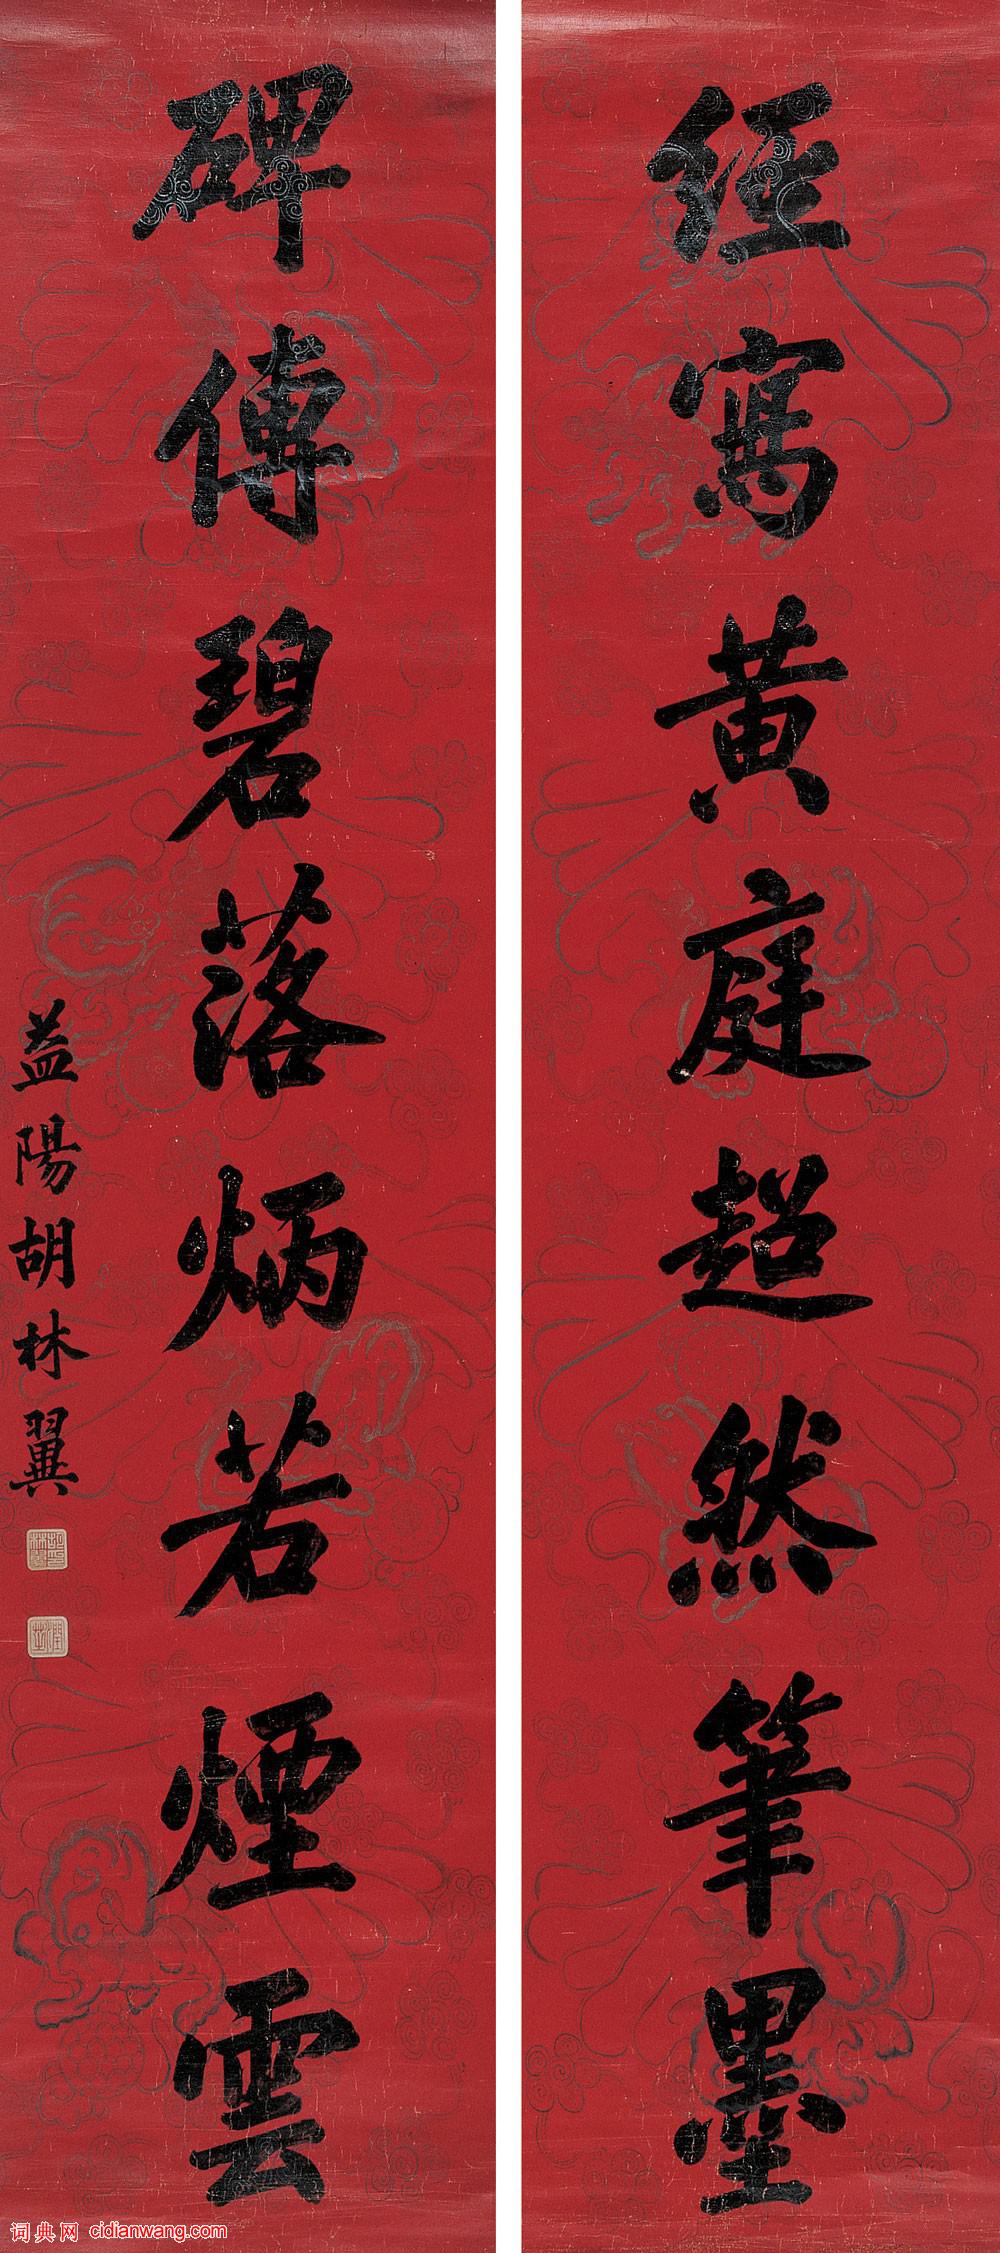 經寫黃庭超然筆墨
碑傳碧落炳若煙雲
益陽胡林翼
词典网 cidianwang.com